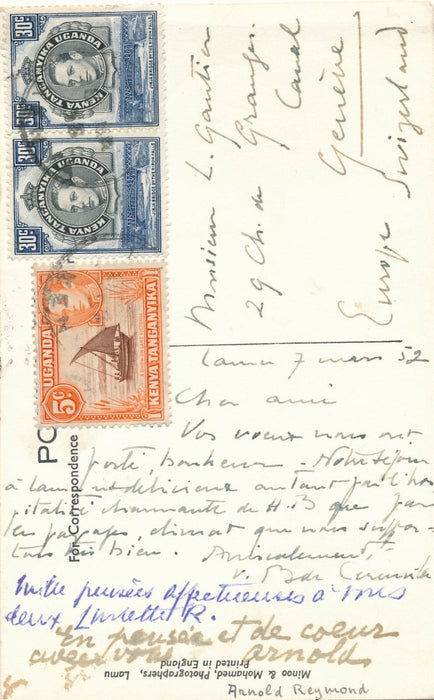 30c
KENYA TANGANYIKA UGANDA
30c
KENYA TANGANYIKA UGANDA
5c
UGANDA
KENYA TANGANYIKA
Monsieur L. Gautier
29 Ch. de Granges
Canal
Genève
Europe Switzerland
PO
For Correspondence
Lamu 7 mars 52
Cher ami
Vos voeux nous ont
porté bonheur. Notre séjour
à Lamu est délicieux autant par l'hos
pitalité charmante de H.B que par
les paysages, climat que nous suppor-
tons très bien. Amicalement
Mille pensées affectueuses à vous
deux R.
En pensée et de coeur
avec vous Arnold
Minoo & Mohamed, Photographers, Lamu
Printed in England
Arnold Reymond